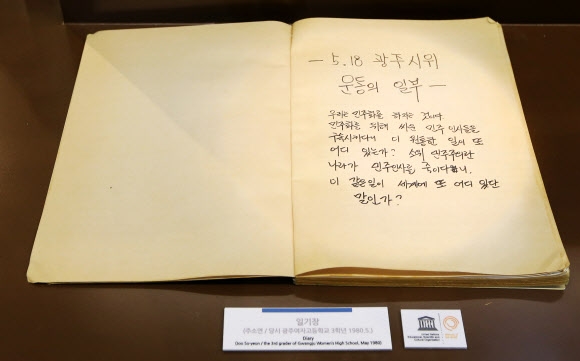 - 5.18 광주시위
운동의 일부 -
우리는 민주화를 바라는 것이다
민주화를 위해 싸운 민주 인사들을
구속시키다니 이 원통한 일이 또
어디 있는가? 소위 민주주의란
나라가 민주인사를 죽이다니.
이 같은일이 세계에 또 어디 있단
말인가?
일기장
(주소연 / 당시 광주여자고등학교 3학년 1980.5.)
Diary
(Joo So-yeon / the 3rd grader of Gwangju Women's High School, May 1980)